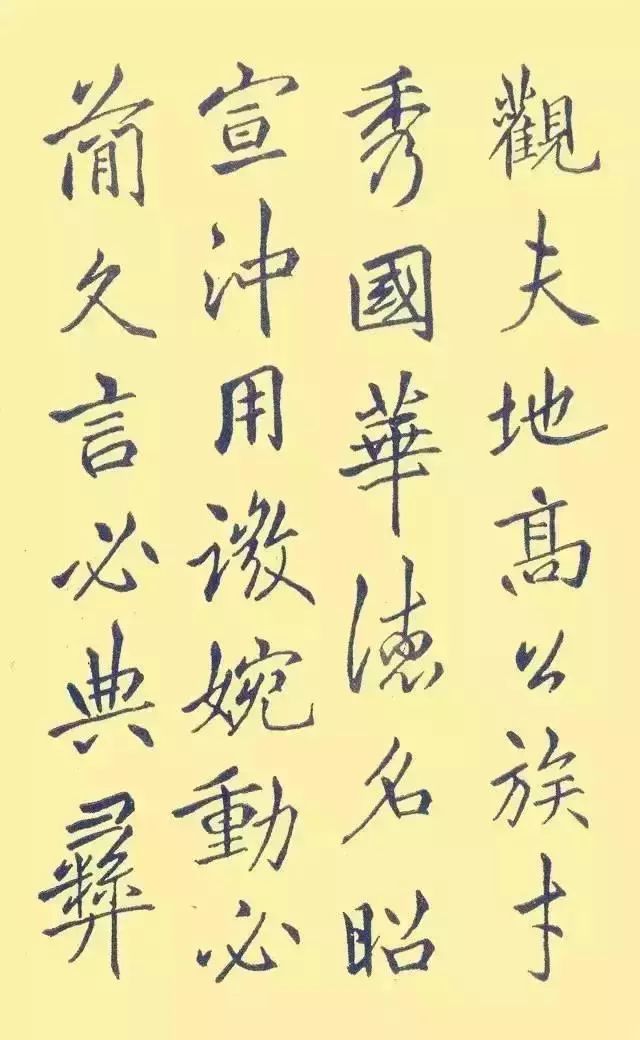 觀夫地高公族才
秀國華德名昭
宣沖用微婉動必
簡久言必典彝